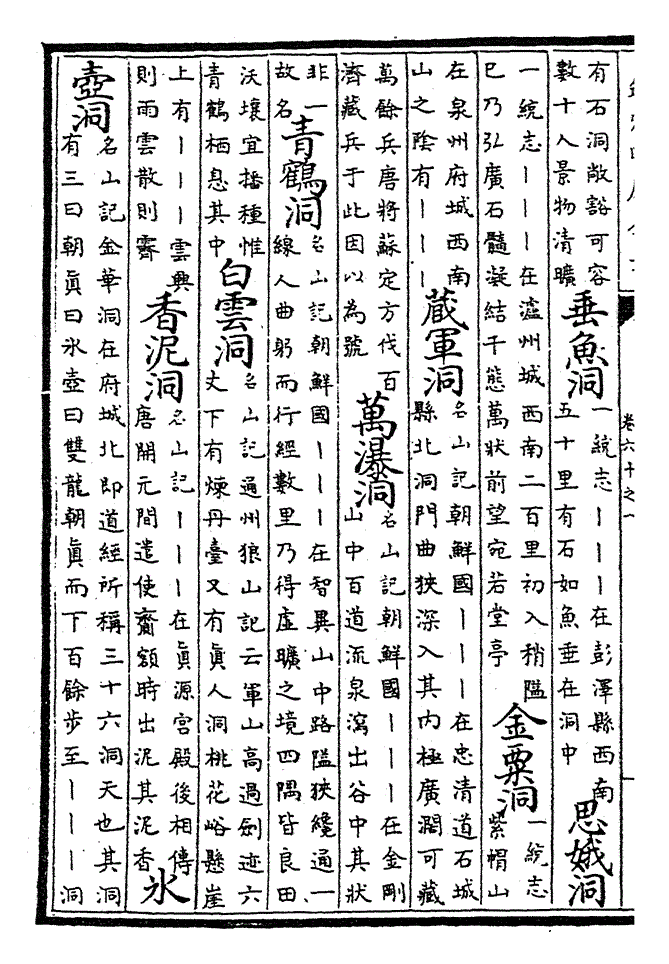 卷六十之一
有石洞敞豁可容
數十人景物清曠
垂魚洞
一統志丨丨丨在彭澤縣西南
五十里有石如魚垂在洞中
思娥洞
一統志丨丨丨在瀘州城西南二百里初入稍隘
已乃弘廣石髓凝結千態萬狀前望宛若堂亭
金粟洞
一統志
紫帽山
在泉州府城西南
山之陰有丨丨丨
藏軍洞
名山記朝鮮國丨丨丨在忠清道石城
縣北洞門曲狹深入其内極廣濶可藏
萬餘兵唐將蘇定方伐百
濟藏兵于此因以為號
萬瀑洞
名山記朝鮮國丨丨丨在金剛
山中百道流泉瀉出谷中其狀
非一
故名
青鶴洞
名山記朝鮮國丨丨丨在智異山中路隘狹纔通一
線人曲躬而行經數里乃得虛曠之境四隅皆良田
沃壤宜播種惟
青鶴栖息其中
白雲洞
名山記通州狼山記云軍山高過劍迹六
丈下有煉丹臺又有眞人洞桃花峪懸崖
上有丨丨丨雲興
則雨雲散則霽
香泥洞
名山記丨丨丨在眞源宮殿後相傳
唐開元間遣使齎額時出泥其泥香
氷
壺洞
名山記金華洞在府城北即道經所稱三十六洞天也其洞
有三曰朝眞曰氷壺曰雙龍朝眞而下百餘步至丨丨丨洞